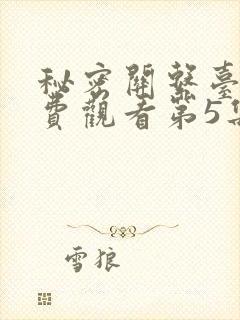 秘密關繫臺
費觀看第5集
雪狼